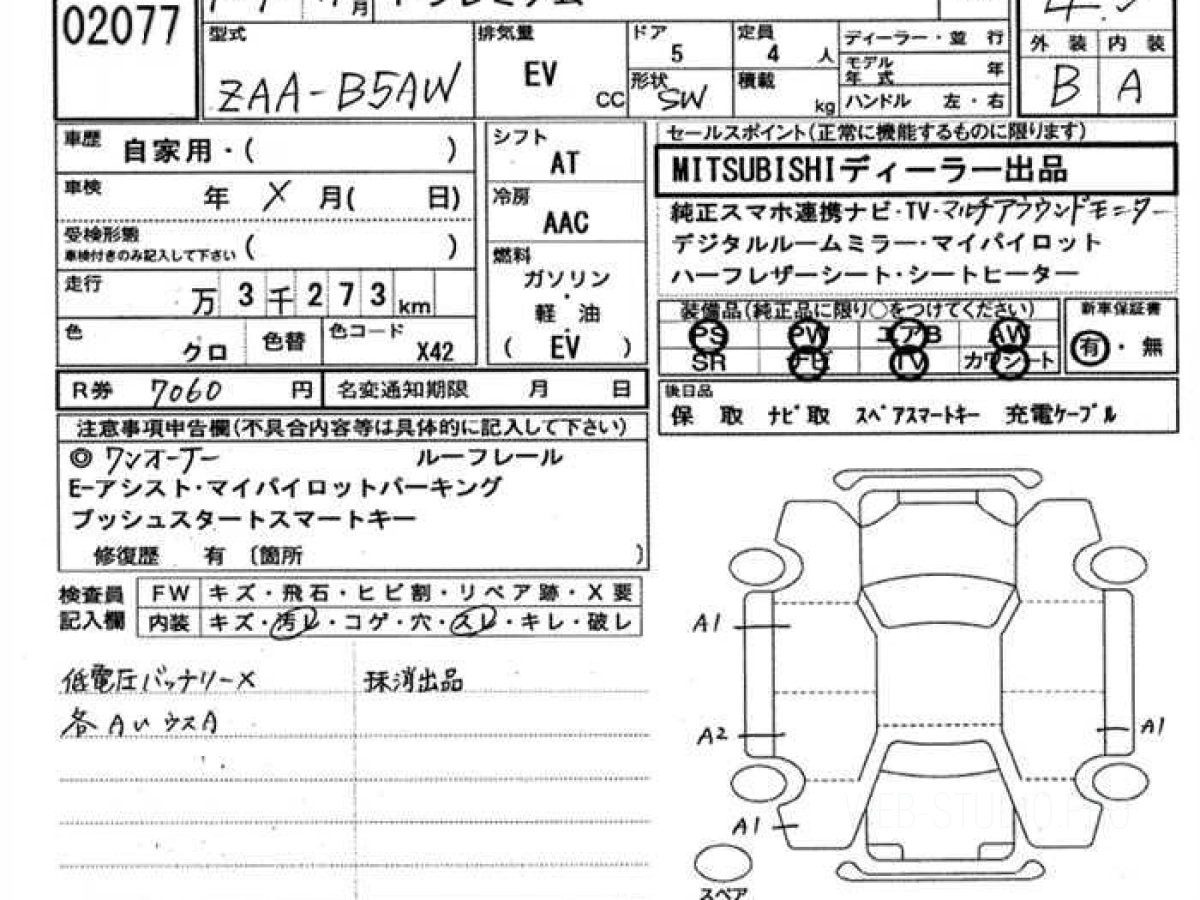 02077
月
型式
ZAA-B5AW
排気量
EV
CC
ドア
5
形状
SW
定員
4 人
積載
kg
ディーラー・並 行
モデル
年 式 年
ハンドル 左・右
外 装 内 装
B A
車歴
自家用・( )
車検
年 X 月( 日)
受検形態
車検付きのみ記入して下さい ( )
走行
万 3 千 2 7 3 km
色
クロ
色替
色コード
X42
シフト
AT
冷房
AAC
燃料
ガソリン
・
軽 油
・
( EV )
セールスポイント(正常に機能するものに限ります)
MITSUBISHIディーラー出品
純正スマホ連携ナビ・TV・マルチアラウンドモニター
デジタルルームミラー・マイパイロット
ハーフレザーシート・シートヒーター
装備品(純正品に限り○をつけてください)
PS PW エアB AW
SR ナビ TV カワシート
新車保証書
有・無
R券 7060 円 名変通知期限 月 日
後日品
保 取 ナビ取 スペアスマートキー 充電ケーブル
注意事項申告欄(不具合内容等は具体的に記入して下さい)
◎ ワンオーナー ルーフレール
E-アシスト・マイパイロットパーキング
プッシュスタートスマートキー
修復歴 有 〔箇所 〕
検査員
記入欄
FW キズ・飛石・ヒビ割・リペア跡・X要
内装 キズ・汚レ・コゲ・穴・スレ・キレ・破レ
低電圧バッテリーX
抹消出品
各AいウスA
A1
A2
A1
A1
スペア
WEB-STUDIO.PRO